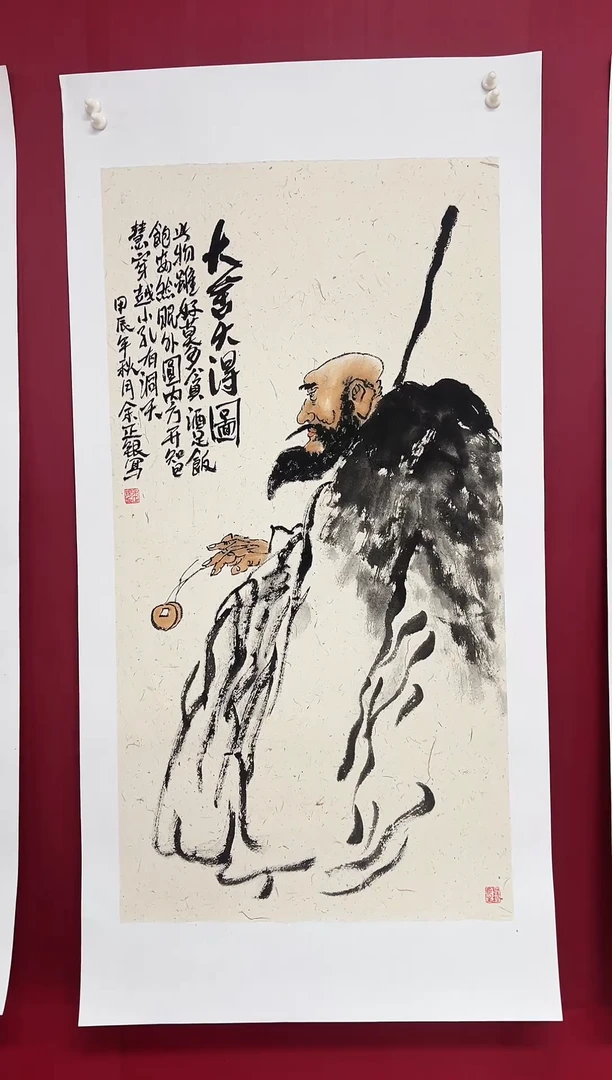 大舍大得圖
此物雖好莫多貪酒足飯
飽安然眠外圓内方开智
慧穿越小孔有洞天
甲辰年秋月余正銀寫